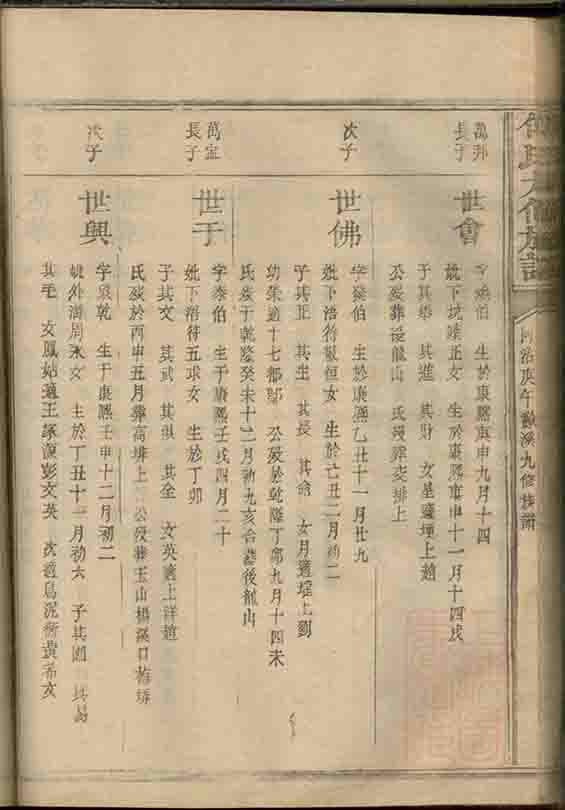 氏大
同治庚午 溪九修族譜
萬邦
長子
世會
字 伯 生於康熙庚申九月十四
妣下坑 正女 生於康熙 申十一月十四戌
子其 其進 其財 女星適 上趙
公歿葬 龍山 氏歿葬 排上
次子
世佛
字 伯 生於康熙乙丑十一月廿九
妣下浯符 恒女 生於 丑二月初二
子其正 其生 其長 其 女月適 上劉
幼榮適十七都鄢 公歿於乾隆丁卯九月十四未
氏歿于乾隆癸未十二月初九亥合墓後龍山
萬
長子
世于
字 伯 生于康熙壬戌四月二十
妣下浯符五求女 生於丁卯
子其文 其武 其 其全 女英適上洋趙
氏歿於丙申五月葬高排上 公歿葬玉山楊溪口
次子
世興
字 乾 生于康熙壬申十二月初二
娶外 周 女 生於丁丑十一月初六 子其 其易
其毛 女鳳姑適王 源彭文英 次適烏泥 黃 亥